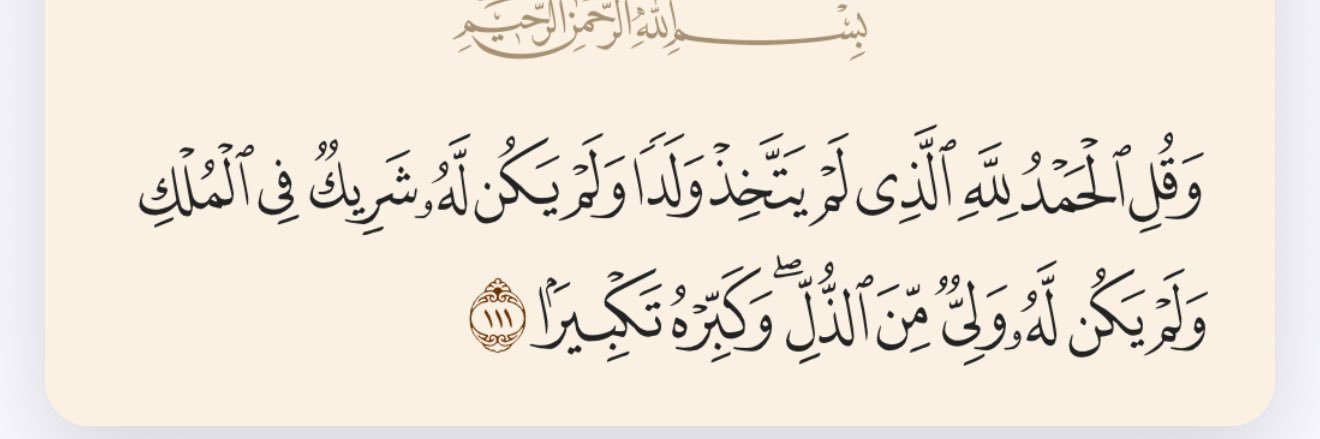 بِسْمِ ٱللَّهِ ٱلرَّحْمَٰنِ ٱلرَّحِيمِ
وَقُلِ ٱلْحَمْدُ لِلَّهِ ٱلَّذِى لَمْ يَتَّخِذْ وَلَدًۭا وَلَمْ يَكُن لَّهُۥ شَرِيكٌۭ فِى ٱلْمُلْكِ
وَلَمْ يَكُن لَّهُۥ وَلِىٌّۭ مِّنَ ٱلذُّلِّ ۖ وَكَبِّرْهُ تَكْبِيرًۢا ١١١